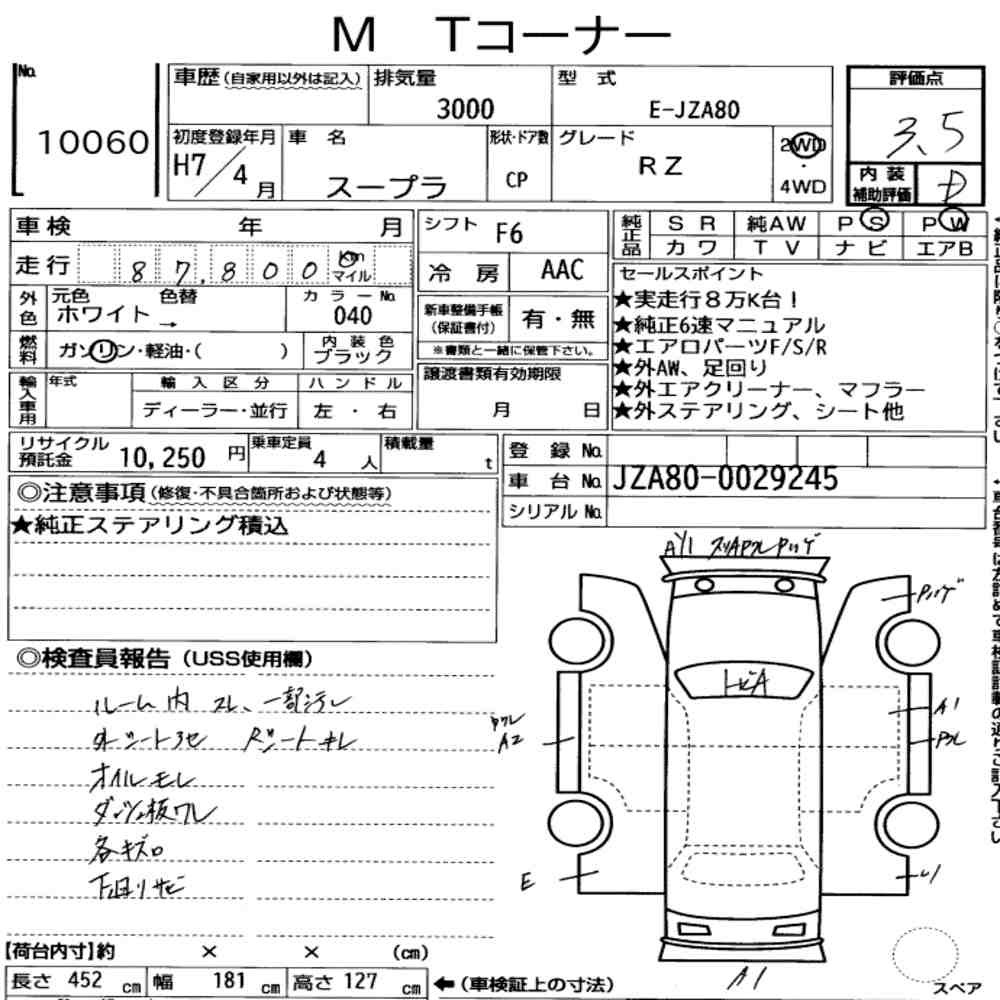 M Tコーナー
No.
10060
車歴(自家用以外は記入)
排気量
3000
型式
E-JZA80
初度登録年月
H7/4月
車名
スープラ
形状・ドア数
CP
グレード
RZ
2WD
・
4WD
評価点
3.5
内装
補助評価
D
車検 年 月
走行 87,800 Km
マイル
外色
元色 色替
ホワイト→
カラーNo.
040
燃料
ガソリン・軽油・( )
内装色
ブラック
輸入車用
年式
輸入区分
ディーラー・並行
ハンドル
左・右
シフト F6
冷房 AAC
新車整備手帳
(保証書付)
有・無
※書類と一緒に保管下さい。
譲渡書類有効期限
月 日
純正品
SR 純AW PS PW
カワ TV ナビ エアB
セールスポイント
★実走行8万K台!
★純正6速マニュアル
★エアロパーツF/S/R
★外AW、足回り
★外エアクリーナー、マフラー
★外ステアリング、シート他
リサイクル
預託金
10,250円
乗車定員
4人
積載量
t
登録No.
車台No. JZA80-0029245
シリアルNo.
◎注意事項(修復・不具合箇所および状態等)
★純正ステアリング積込
◎検査員報告(USS使用欄)
ルーム内 スレ、一部汚レ
外シート3セ Rシートキレ
オイルモレ
ダッシュ板ワレ
各キズ
下回リサビ
AY1
トビA
A1
A2
E
A1
スペア
【荷台内寸】約 × × (cm)
長さ 452 cm 幅 181 cm 高さ 127 cm
←(車検証上の寸法)